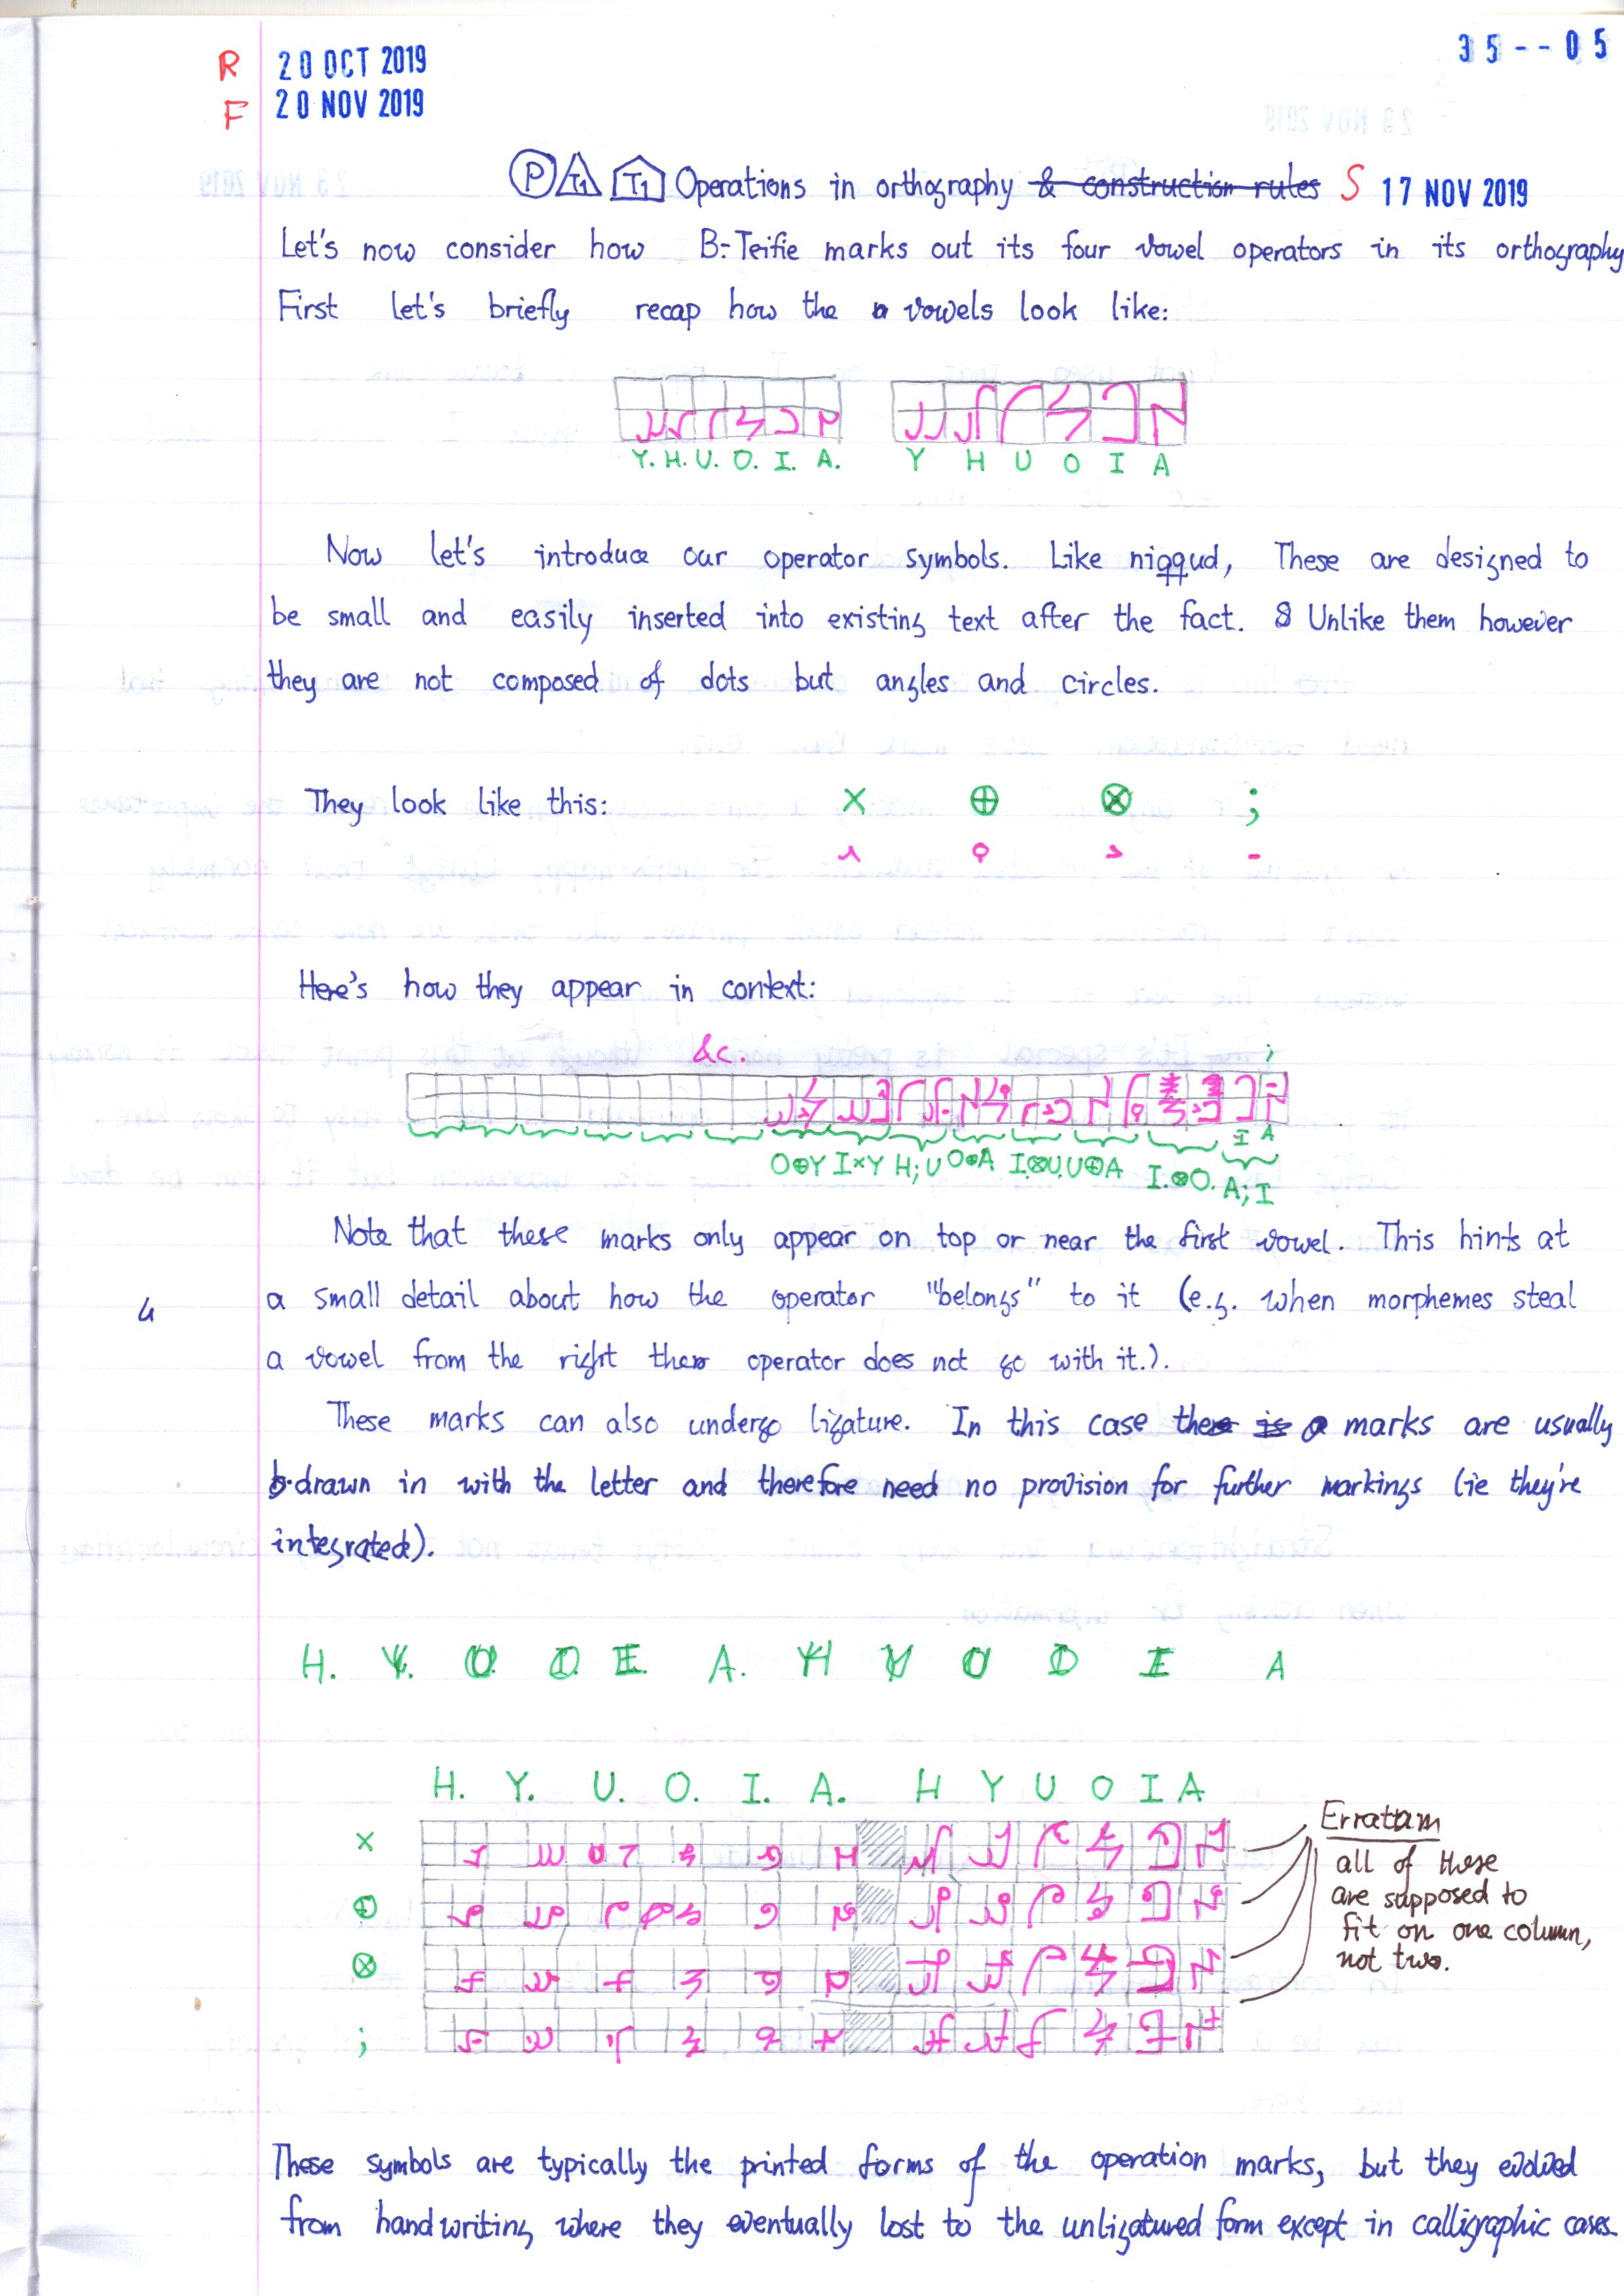 35--05
R 20 OCT 2019
F 20 NOV 2019
P T1 T1 Operations in orthography & construction rules S 17 NOV 2019
Let's now consider how B:-Teifie marks out its four vowel operators in its orthography
First let's briefly recap how the vowels look like:
Y. H. U. O. I. A. Y H U O I A
Now let's introduce our operator symbols. Like niqqud, These are designed to
be small and easily inserted into existing text after the fact. Unlike them however
they are not composed of dots but angles and circles.
They look like this: × ⊕ ⊗ ;
Here's how they appear in context:
&c. ;
I A
O⊕Y I×Y H;U O⊕A I.⊗U. U⊕A I.⊗O. A;I
Note that these marks only appear on top or near the first vowel. This hints at
a small detail about how the operator "belongs" to it (e.g. when morphemes steal
a vowel from the right their operator does not go with it.).
These marks can also undergo ligature. In this case the is a marks are usually
drawn in with the letter and therefore need no provision for further markings (ie they're
integrated).
H. Y. U. O. I. A. H Y U O I A
×
⊕
⊗
;
Erratum
all of these
are supposed to
fit on one column,
not two.
These symbols are typically the printed forms of the operation marks, but they evolved
from handwriting where they eventually lost to the unligatured form except in calligraphic cases.